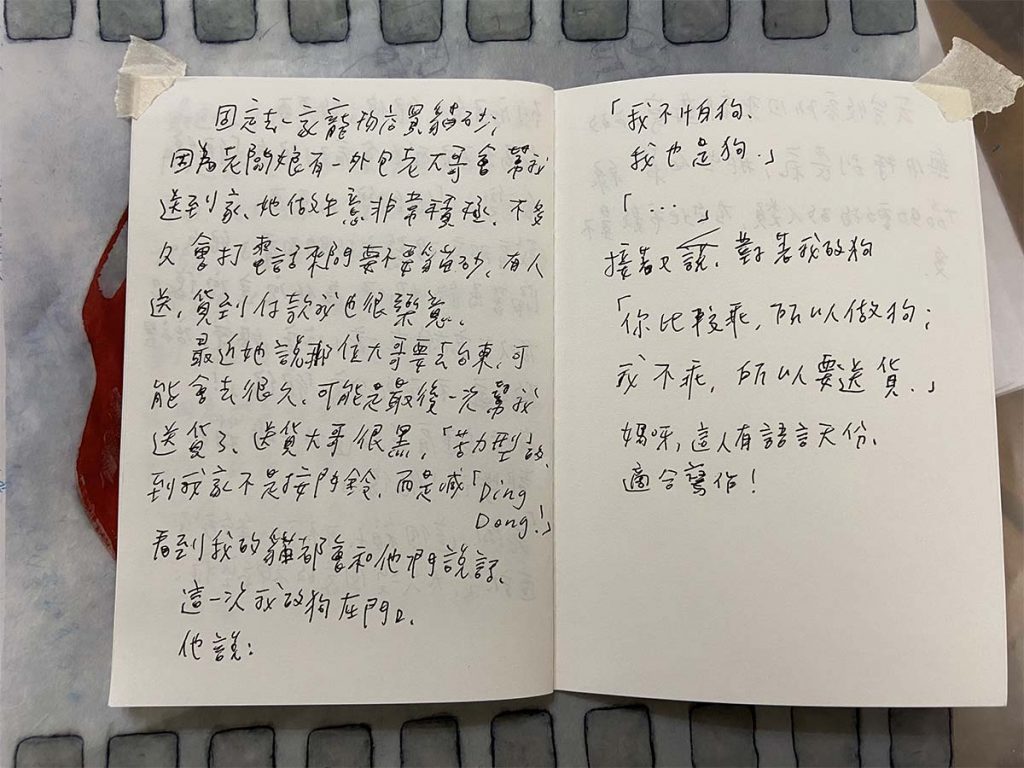 固定去一家寵物店買貓砂；
因為老闆娘有一外包老大哥會幫我
送到家、她做生意非常積極、不多
久會打電話來問要不要貓砂、有人
送，貨到付款我也很樂意、
最近她說那位大哥要去台東、可
能會去很久、可能是最後一次幫我
送貨了、送貨大哥很黑，「苦力型」的、
到我家不是按門鈴、而是喊「Ding
Dong!」
看到我的貓都會和他們說話、
這一次我的狗在門口、
他說：
「我不怕狗、
我也是狗、」
「...」
接著又說、對著我的狗
「你比較乖，所以做狗；
我不乖，所以要送貨、」
媽呀，這人有語言天份、
適合寫作！